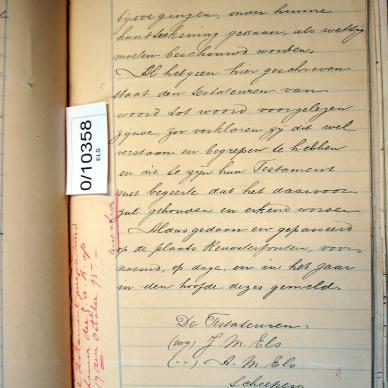 bijvoegingen, onder hunne
handteekening gedaan, als wettig
moeten beschouwd worden.
Al hetgeen hier geschreven
staat den testateuren van
woord tot woord voorgelezen
zijnde, zoo verklaren zij dit wel
verstaan en begrepen te hebben
en dit te zijn hun Testament
met begeerte dat het daarvoor
gehouden en erkend worden
Aldus gedaan en gepasseerd
op de plaats Renosterfontein, voor-
noemd, op dage, en in het jaar
in den hoofde dezes gemeld.
De Testateuren.
(wg) J M Els
(--) A. M Els
Scheepers
0/10358
ELS
October 95